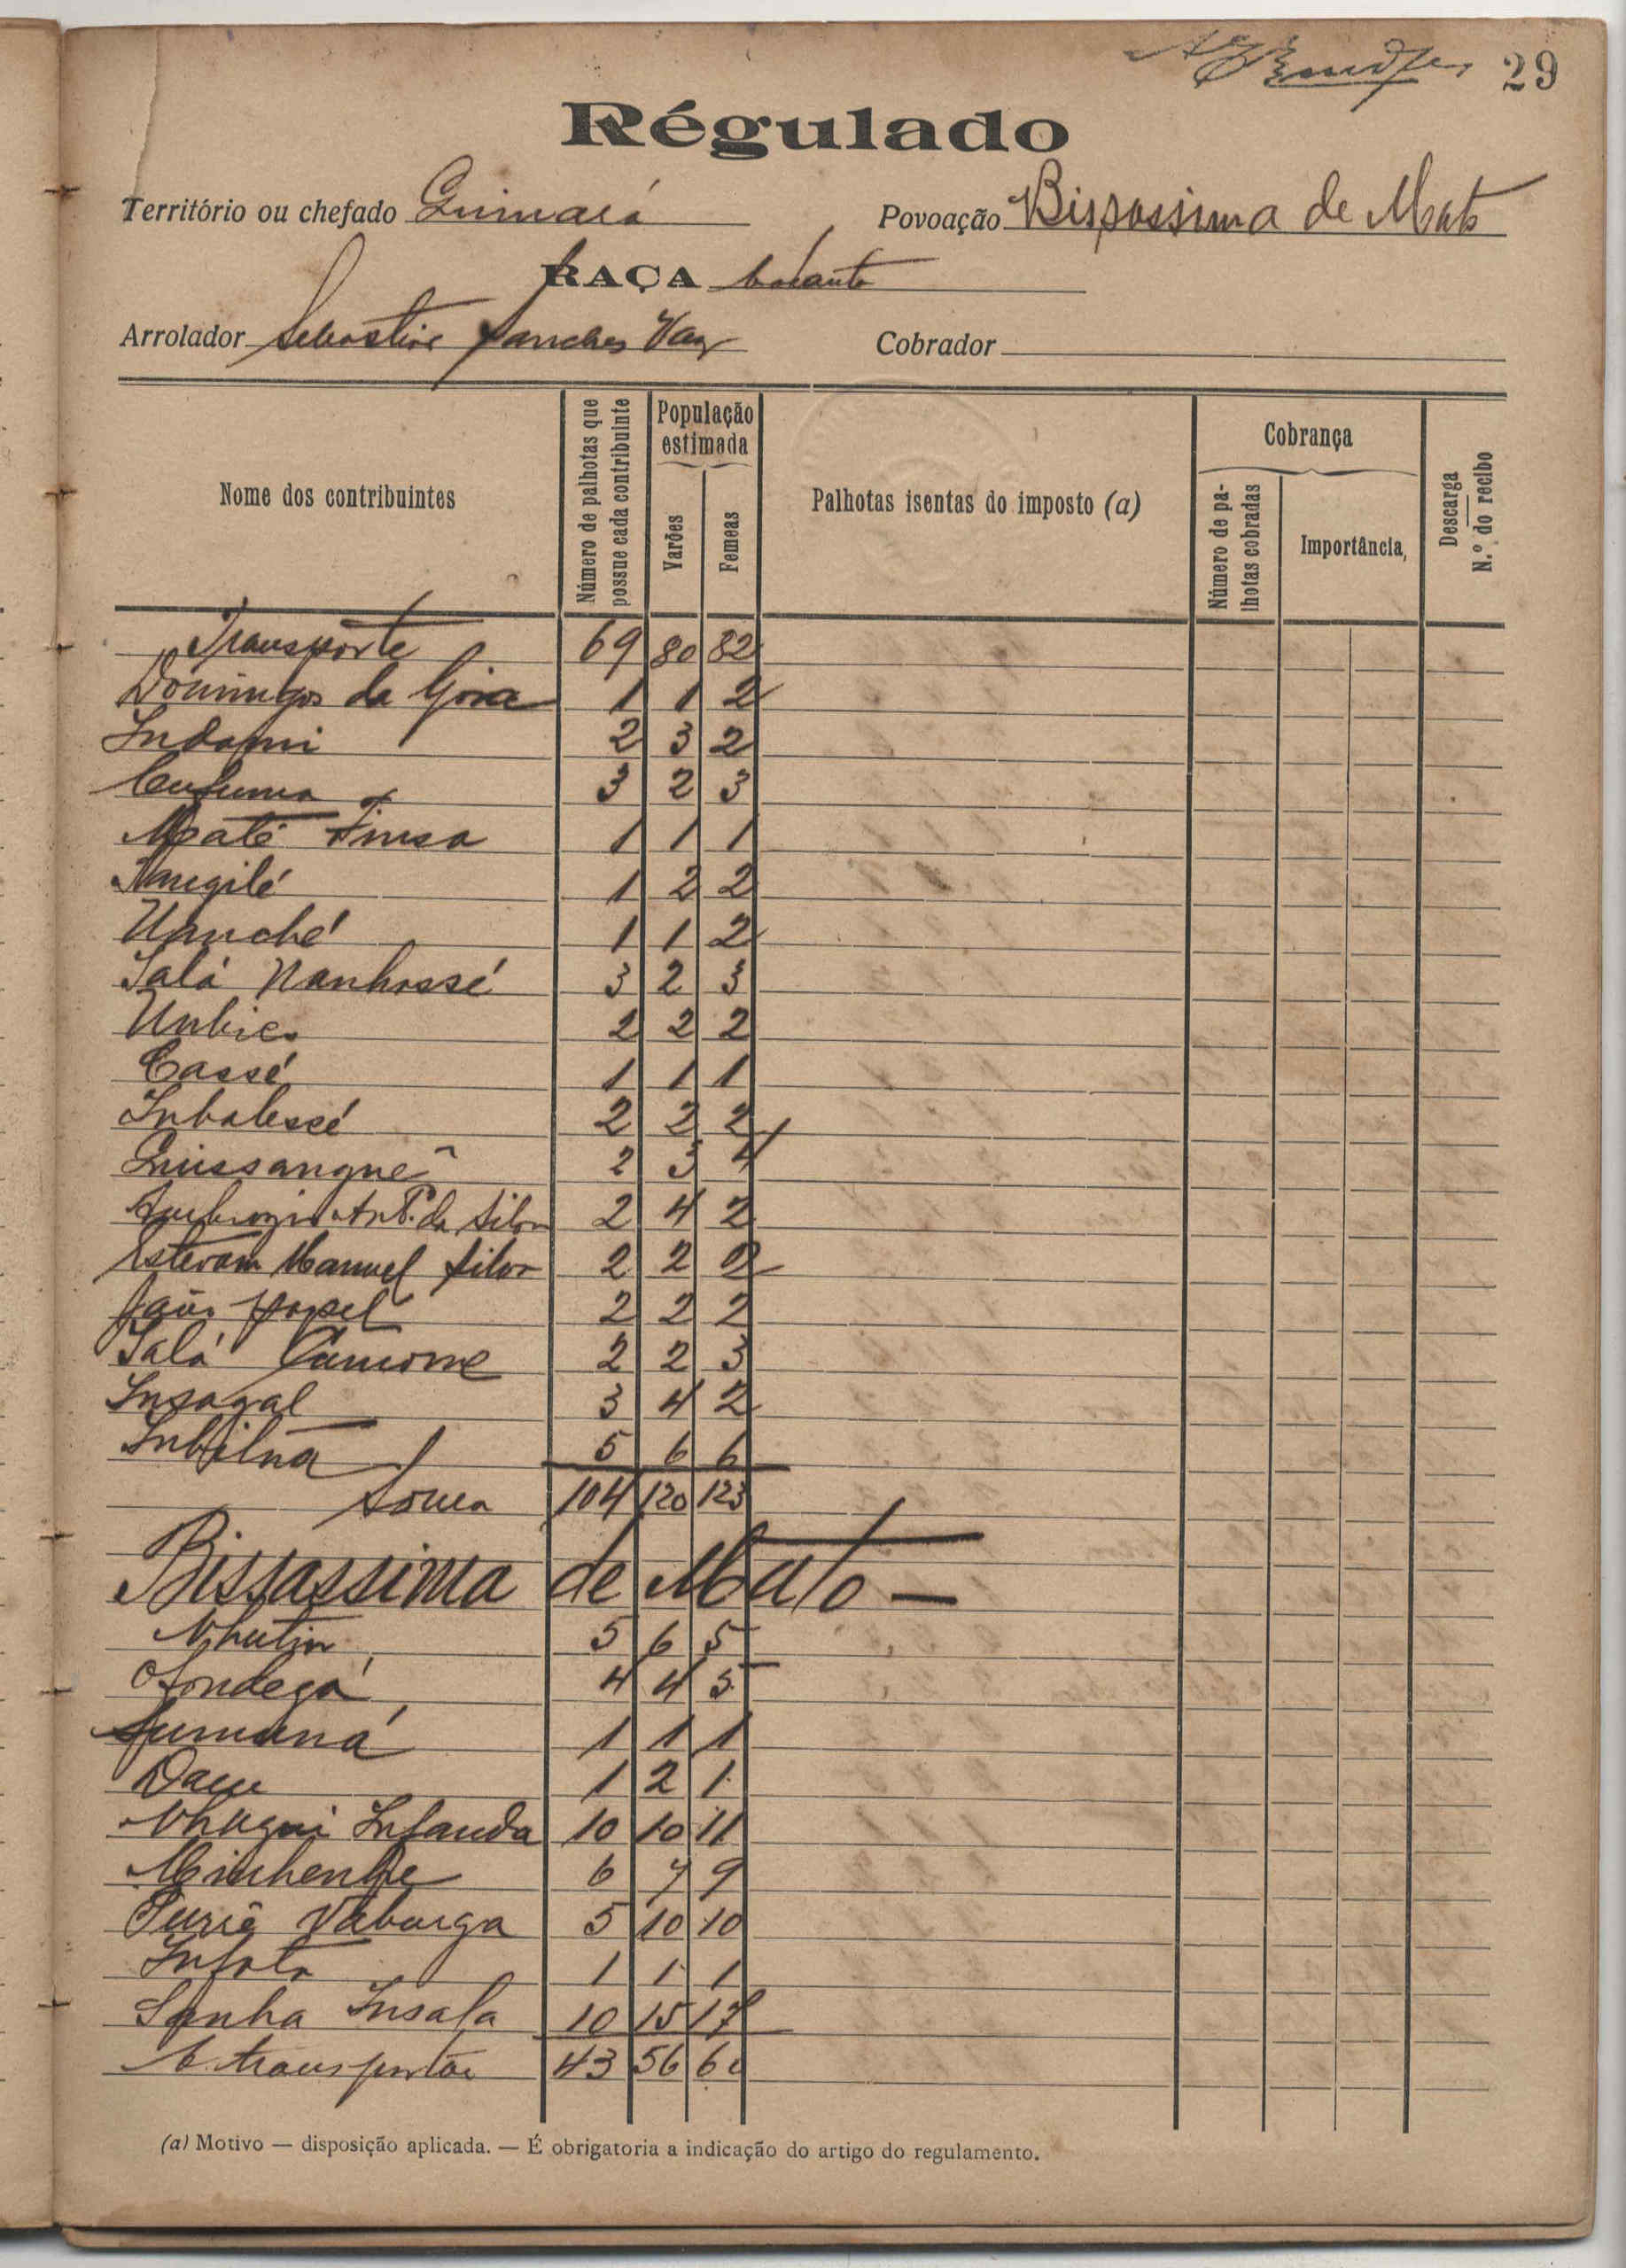 29
Régulado
Território ou chefado Quinará Povoação Bissassima de Mato
RAÇA balanta
Arrolador Sebastião Sanches Vaz Cobrador
Nome dos contribuintes
Número de palhotas que possue cada contribuinte
População estimada
Varões
Femeas
Palhotas isentas do imposto (a)
Cobrança
Número de palhotas cobradas
Importância,
Descarga
N.º do recibo
Transporte 69 80 82
Domingos da Goia 1 1 2
Indami 2 3 2
3 2 3
1 1 1
1 2 2
Uanché 1 1 2
Salá Nanhassé 3 2 3
2 2 2
Cassé 1 1 1
Inbalessé 2 2 2
Quissanguê 2 3 4
Ambrozio Ant. da Silva 2 4 2
Estevam Manuel Silva 2 2 2
João papel 2 2 2
Salá Camone 2 2 3
Insagal 3 4 2
5 6 6
Soma 104 120 123
Bissassima de Mato —
5 6 5
4 4 5
1 1 1
1 2 1
Infanda 10 10 11
6 7 9
5 10 10
1 1 1
Sanha Insafa 10 15 17
A transportar 43 56 60
(a) Motivo — disposição aplicada. — É obrigatoria a indicação do artigo do regulamento.